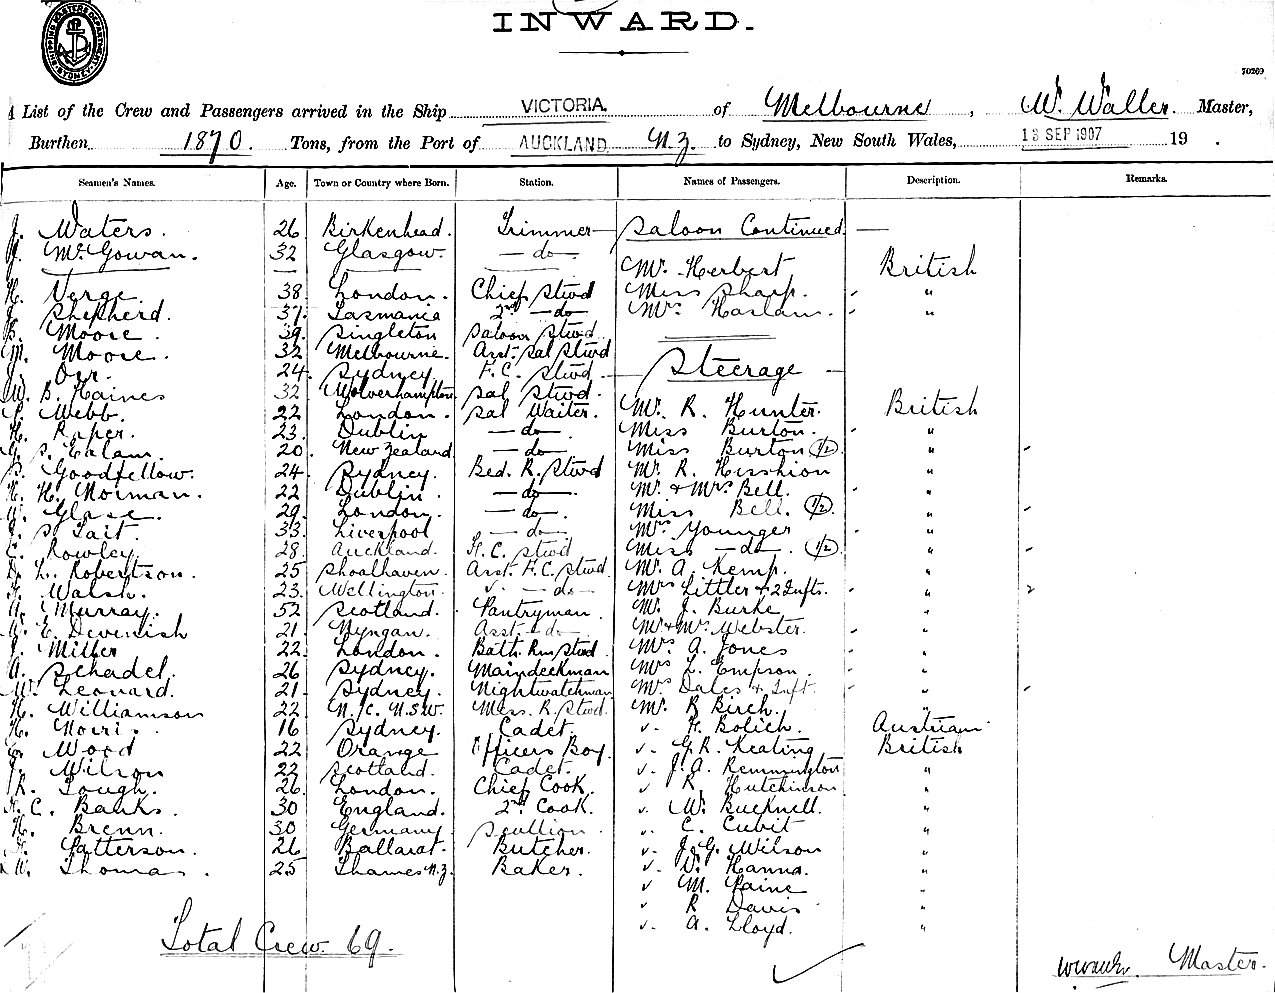 INWARD.
70269
A List of the Crew and Passengers arrived in the Ship VICTORIA. of Melbourne, W. Waller. Master,
Burthen 1870. Tons, from the Port of AUCKLAND N.Z. to Sydney, New South Wales, 13 SEP 1907 19 .
Seamen's Names. Age. Town or Country where Born. Station. Names of Passengers. Description. Remarks.
J. Waters. 26 Birkenhead. Trimmer Saloon Continued
McGowan. 32 Glasgow. — do — Mr. Herbert British
H. Verge. 38 London. Chief Stwd Miss Sharp. "
Shepherd. 37 Tasmania 2nd — do — Haslam. "
Moore. 39 Singleton Saloon Stwd
M. Moore. 32 Melbourne. Asst. Sal Stwd
J. Orr. 24 Sydney F.C. Stwd Steerage
W. B. Haines 32 Wolverhampton Sal Stwd.
Webb. 22 London. Sal Waiter. Mr. R. Hunter. British
H. Raper. 23 Dublin — do — Miss Burton. "
Ealam. 20 New Zealand — do — Miss Burton (1/2) "
Goodfellow. 24 Sydney. Bed. R. Stwd Mr. R. Hishion "
H. H. Norman. 22 Dublin. — do — Mr. & Mrs Bell. "
Glase. 29 London. — do — Miss Bell. (1/2) "
J. S. Tait. 33 Liverpool — do — Mrs Younger "
C. Rowley. 28 Auckland. Stwd Miss — do — (1/2) "
D. L. Robertson. 25 Shoalhaven. Asst. F.C. Stwd Mr. A. Kemp. "
Walsh. 23 Wellington. — do — Mrs Littler + 2 Infts. " 2
A. Murray. 52 Scotland. Pantryman. Mr. J. Burke "
E. Devenish 21 Nyngan. Asst — do — Mr & Mrs Webster. "
J. Miller 22 London. Bath Rm Stwd. Mrs A. Jones "
A. Schadel. 26 Sydney. Maindeckman Mrs L. Empson. "
Leonard. 21 Sydney. Nightwatchman Mrs Dales + Inft. "
H. Williamson 22 N/C. N.S.W. Mess. R. Stwd. Mr. R Birch. "
H. 16 Sydney. Cadet. H. Bolich. Austrian
Wood 22 Orange Officers Boy G. R. Keating British
J. Wilson 22 Scotland. Cadet. J. A. Remmington "
R. Gough. 26 London. Chief Cook. R. Hutchinson "
C. Banks. 30 England. 2nd Cook. W. Bucknell. "
H. Brenn. 30 Germany. Scullion. C. Cubit "
Patterson. 26 Ballarat. Butcher. J. G. Wilson "
W. Thomas. 25 Thames N.Z. Baker. Hanna. "
M. Paine "
R Davis "
A. Lloyd. "
Total Crew 69.
Master.